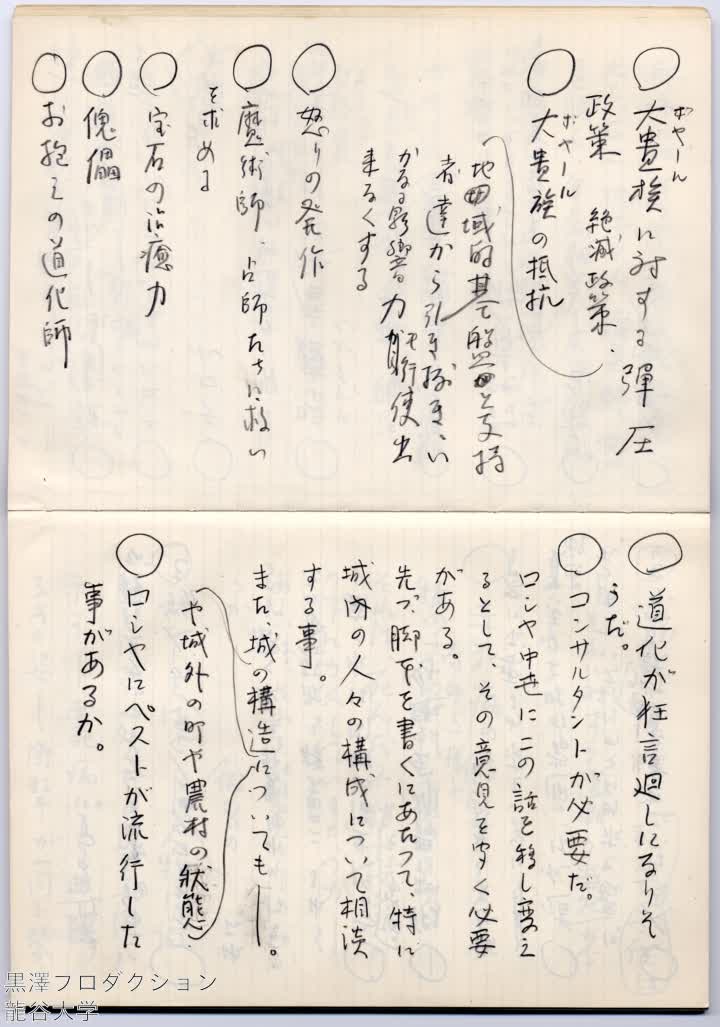 ○大貴族に対する弾圧
ボヤール
政策 絶滅政策。
○大貴族の抵抗
ボヤール
地域的基盤と支持
者達から引き抜き、い
かなる影響力も行使出
来なくする
○怒りの発作
○魔術師、占師たちに救い
を求める
○宝石の治癒力
○傀儡
○お抱えの道化師
○道化が狂言廻しになりそ
うだ。
○コンサルタントが必要だ。
ロシヤ中世にこの話を移し変え
るとして、その意見をきく必要
がある。
先づ、脚本を書くにあたって、特に
城内の人々の構成について相談
する事。
また、城の構造についても―。
や城外の町や農村の状態
○ロシヤにペストが流行した
事があるか。
黒澤プロダクション
龍谷大学